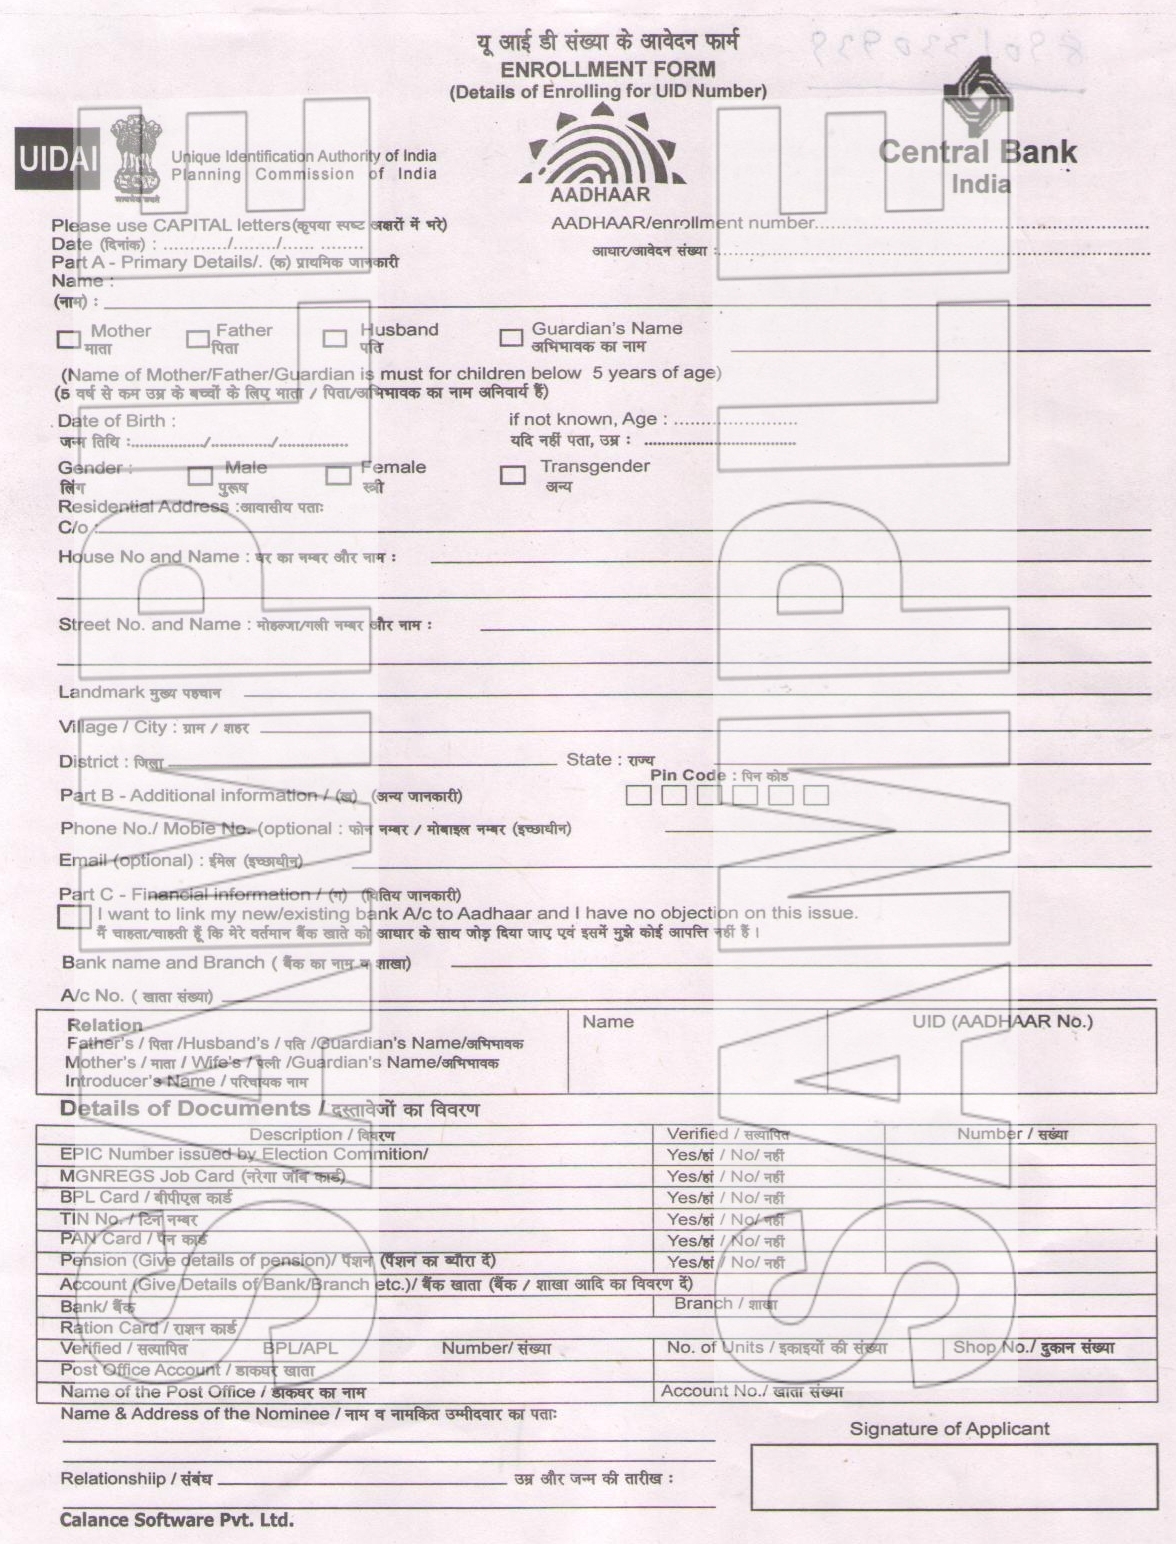 यू आई डी संख्या के आवेदन फार्म
ENROLLMENT FORM
(Details of Enrolling for UID Number)
UIDAI
Unique Identification Authority of India
Planning Commission of India
AADHAAR
Central Bank
India
Please use CAPITAL letters(कृपया स्पष्ट अक्षरों में भरे) AADHAAR/enrollment number..........
Date (दिनांक) : ............/......../...... ......... आधार/आवेदन संख्या :..........
Part A - Primary Details/. (क) प्राथमिक जानकारी
Name :
(नाम) :
Mother Father Husband Guardian's Name
माता पिता पति अभिभावक का नाम
(Name of Mother/Father/Guardian is must for children below 5 years of age)
(5 वर्ष से कम उम्र के बच्चों के लिए माता / पिता/अभिभावक का नाम अनिवार्य हैं)
Date of Birth : if not known, Age : ......................
जन्म तिथि :............../............../.............. यदि नहीं पता, उम्र : ..............................
Gender : Male Female Transgender
लिंग पुरूष स्त्री अन्य
Residential Address :आवासीय पताः
C/o :
House No and Name : घर का नम्बर और नाम :
Street No. and Name : मोहल्जा/गली नम्बर और नाम :
Landmark मुख्य पहचान
Village / City : ग्राम / शहर
District : जिला State : राज्य
Pin Code : पिन कोड
Part B - Additional information / (ख) (अन्य जानकारी)
Phone No./ Mobie No. (optional : फोन नम्बर / मोबाइल नम्बर (इच्छाधीन)
Email (optional) : ईमेल (इच्छाधीन)
Part C - Financial information / (ग) (वितिय जानकारी)
I want to link my new/existing bank A/c to Aadhaar and I have no objection on this issue.
मैं चाहता/चाहती हूँ कि मेरे वर्तमान बैंक खाते को आधार के साथ जोड़ दिया जाए एवं इसमें मुझे कोई आपत्ति नहीं हैं ।
Bank name and Branch ( बैंक का नाम व शाखा)
A/c No. ( खाता संख्या)
Relation Name UID (AADHAAR No.)
Father's / पिता /Husband's / पति /Guardian's Name/अभिभावक
Mother's / माता / Wife's / पत्नी /Guardian's Name/अभिभावक
Introducer's Name / परिचायक नाम
Details of Documents / दस्तावेजों का विवरण
Description / विवरण Verified / सत्यापित Number / संख्या
EPIC Number issued by Election Commition/ Yes/हां / No/ नहीं
MGNREGS Job Card (नरेगा जॉब कार्ड) Yes/हां / No/ नहीं
BPL Card / बीपीएल कार्ड Yes/हां / No/ नहीं
TIN No. / टिन नम्बर Yes/हां / No/ नहीं
PAN Card / पेन कार्ड Yes/हां / No/ नहीं
Pension (Give details of pension)/ पेंशन (पेंशन का ब्यौरा दें) Yes/हां / No/ नहीं
Account (Give Details of Bank/Branch etc.)/ बैंक खाता (बैंक / शाखा आदि का विवरण दें)
Bank/ बैंक Branch / शाखा
Ration Card / राशन कार्ड
Verified / सत्यापित BPL/APL Number/ संख्या No. of Units / इकाइयों की संख्या Shop No./ दुकान संख्या
Post Office Account / डाकघर खाता
Name of the Post Office / डाकघर का नाम Account No./ खाता संख्या
Name & Address of the Nominee / नाम व नामकित उम्मीदवार का पताः
Signature of Applicant
Relationshiip / संबंध उम्र और जन्म की तारीख :
Calance Software Pvt. Ltd.
SAMPLE
SAMPLE